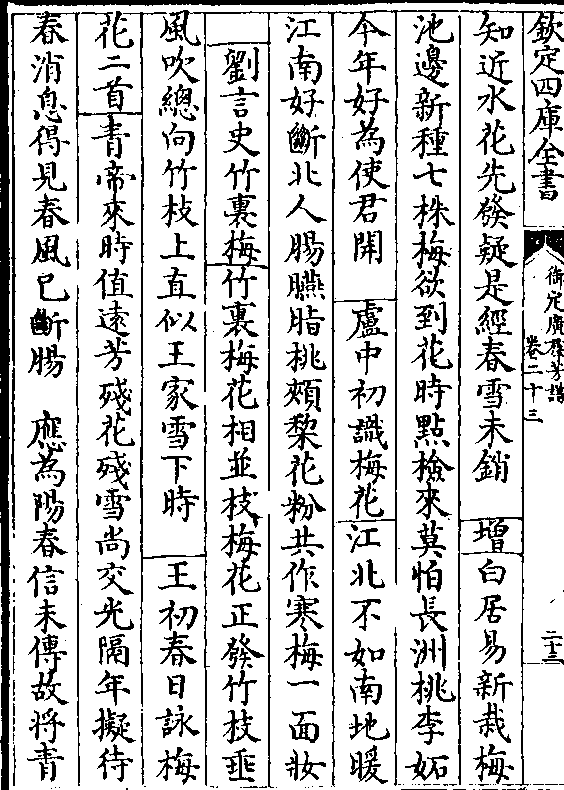 欽定四庫全書
御定廣群芳譜
卷二十三
二十三
知近水花先發疑是經春雪未銷 增 白居易新栽梅
池邊新種七株梅欲到花時點檢來莫怕長洲桃李妬
今年好為使君開 盧中初識梅花 江北不如南地暖
江南好斷北人腸臙脂桃頰梨花粉共作寒梅一面妝
劉言史竹裏梅 竹裏梅花相並枝梅花正發竹枝垂
風吹總向竹枝上直似王家雪下時 王初春日詠梅
花二首 青帝來時值遠芳殘花殘雪尚交光隔年擬待
春消息得見春風已斷腸 應為陽春信未傳故將青